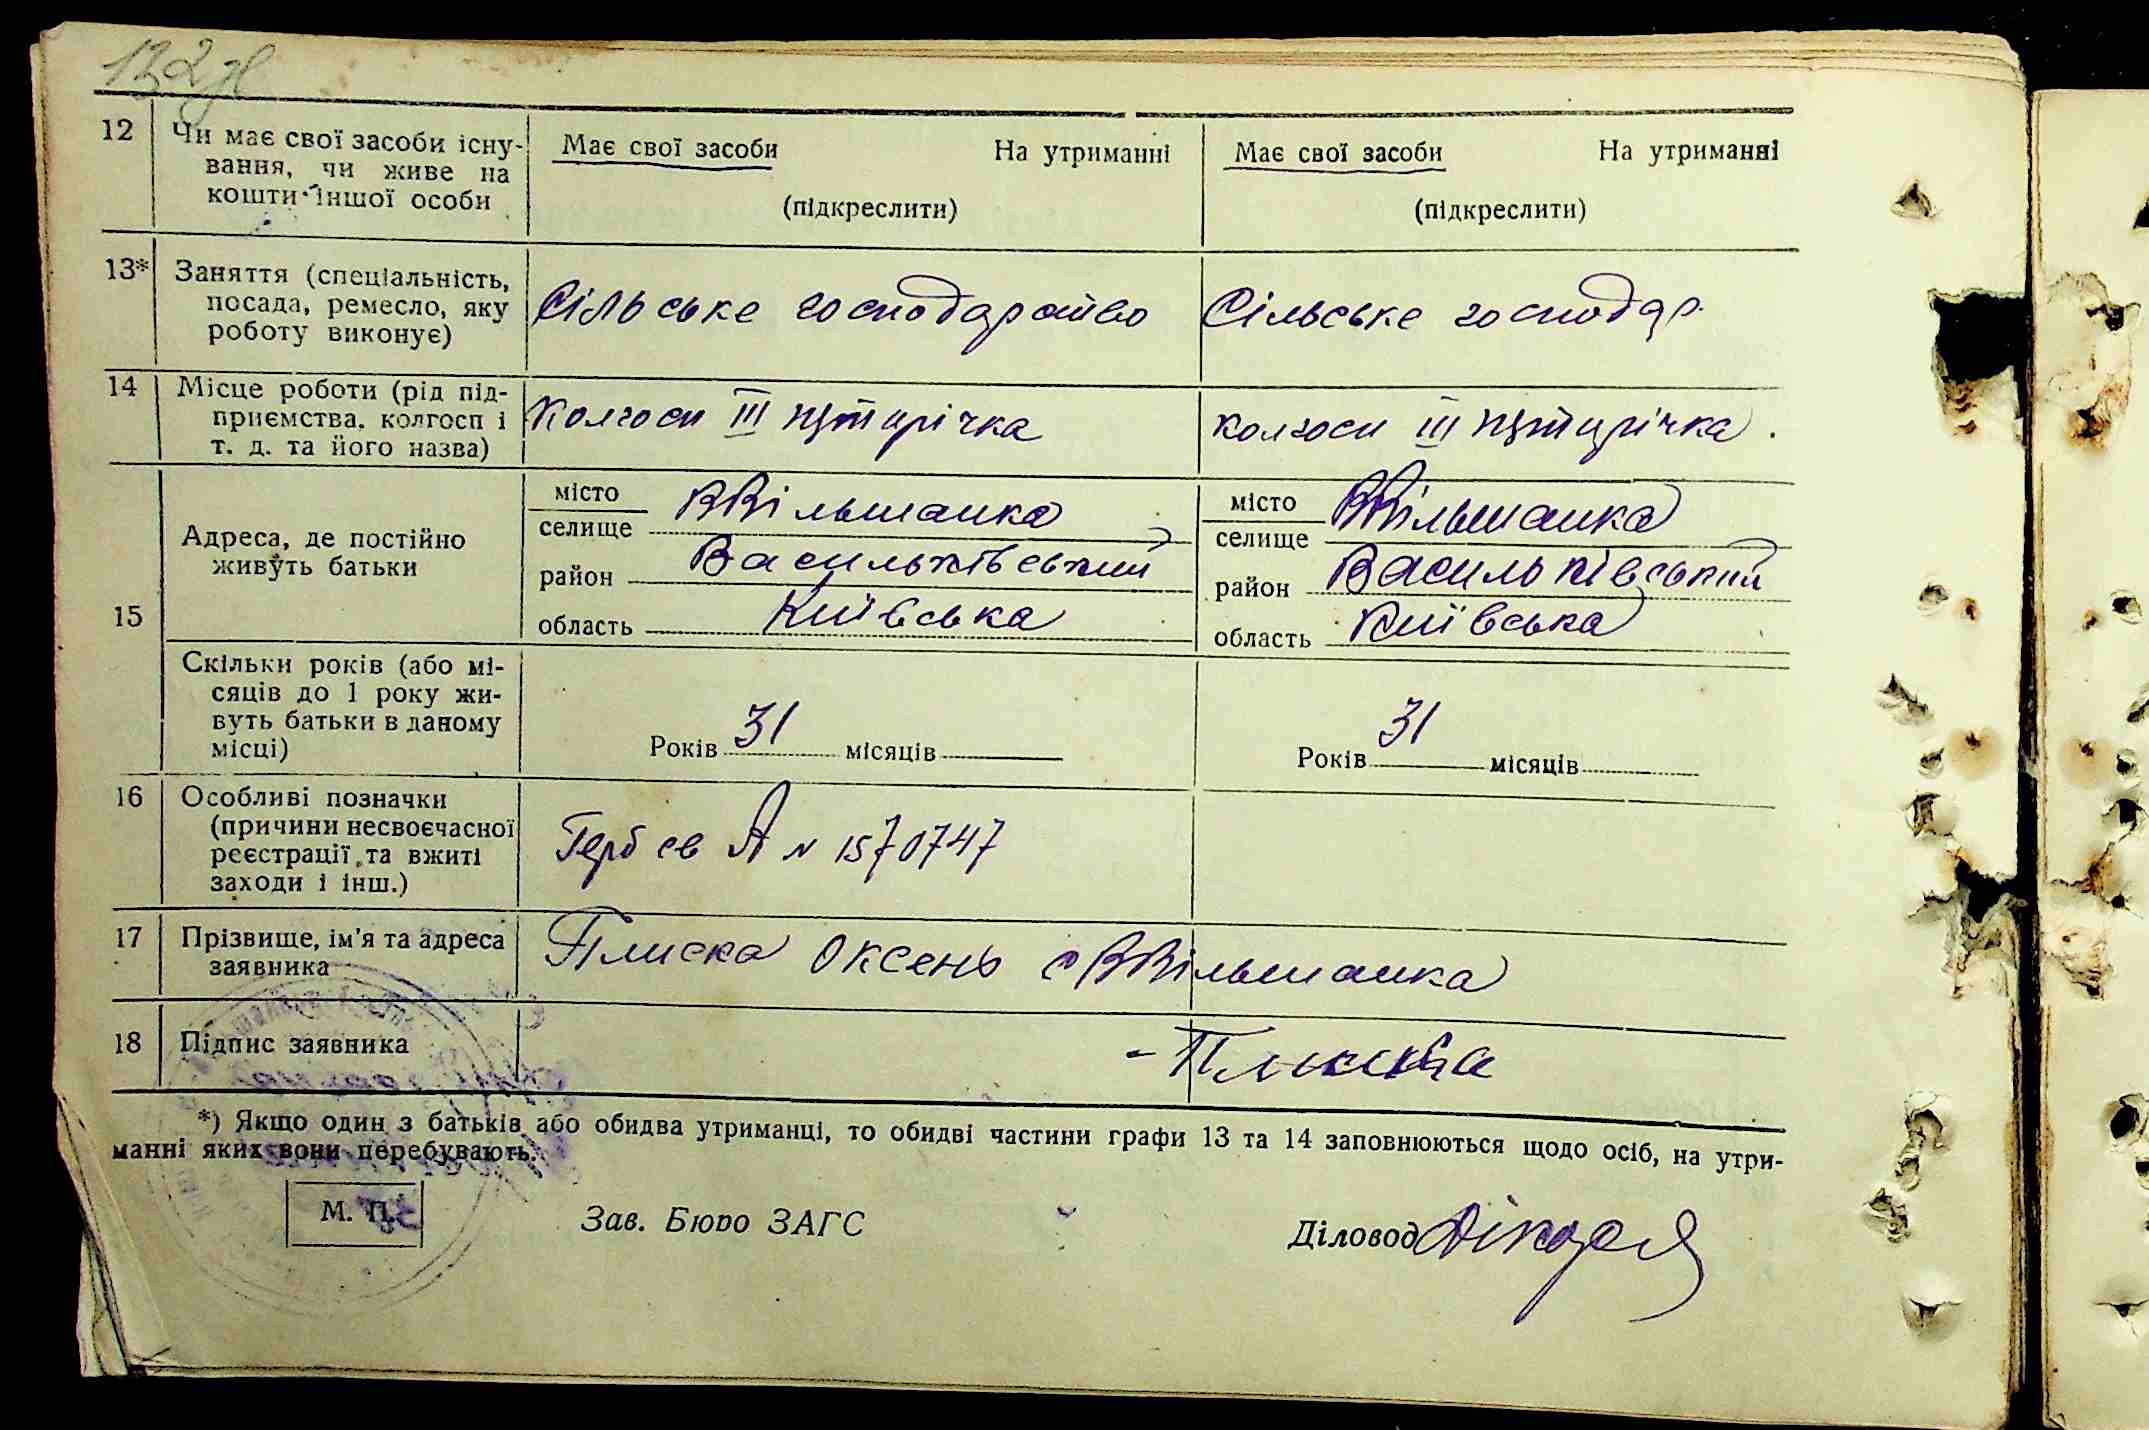 132зв
12 Чи має свої засоби існу- Має свої засоби На утриманні Має свої засоби На утриманні
вання, чи живе на
кошти іншої особи (підкреслити) (підкреслити)
13* Заняття (спеціальність,
посада, ремесло, яку Сільське господарство Сільське господар.
роботу виконує)
14 Місце роботи (рід під-
приємства, колгосп і Колгосп III пятирічка колгосп III пятирічка.
т. д. та його назва)
15 Адреса, де постійно
живуть батьки
місто ВВільшанка місто ВВільшанка
селище селище
район Васильківський район Васильківський
область Київська область Київська
Скільки років (або мі-
сяців до 1 року жи-
вуть батьки в даному
місці) Років 31 місяців Років 31 місяців
16 Особливі позначки
(причини несвоєчасної Герб св А N 1570747
реєстрації та вжиті
заходи і інш.)
17 Прізвище, ім'я та адреса Плиска Оксень с ВВільшанка
заявника
18 Підпис заявника - Плиска
*) Якщо один з батьків або обидва утриманці, то обидві частини графи 13 та 14 заповнюються щодо осіб, на утри-
манні яких вони перебувають.
М. П. Зав. Бюро ЗАГС Діловод